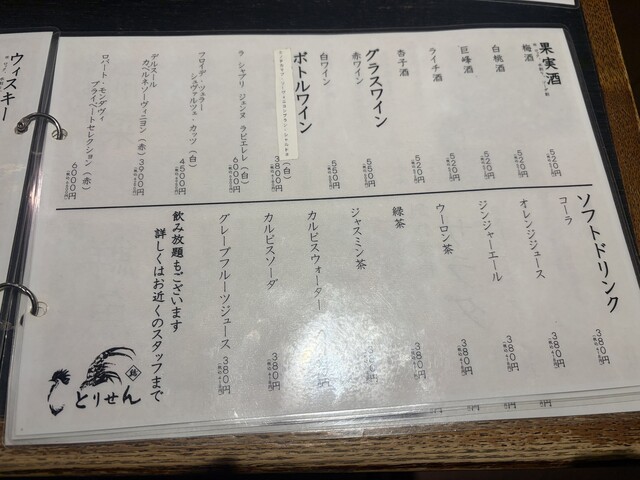 果実酒
梅酒
520円
白桃酒
520円
巨峰酒
520円
ライチ酒
520円
杏子酒
520円
グラスワイン
赤ワイン
550円
白ワイン
550円
ボトルワイン
(白)
3800円
ラ シャブリ ジェンヌ ラビエレレ(白)
6000円
フロイデ・ツェラー
シュヴァルツェ・カッツ(白)
4500円
デルスール
カベルネソーヴィニヨン(赤)
3900円
ロバート・モンダヴィ
プライベートセレクション(赤)
6000円
ソフトドリンク
コーラ
380円
オレンジジュース
380円
ジンジャーエール
380円
ウーロン茶
380円
緑茶
380円
ジャスミン茶
380円
カルピスウォーター
380円
カルピスソーダ
380円
グレープフルーツジュース
380円
飲み放題もございます
詳しくはお近くのスタッフまで
とりせん
ウィスキー